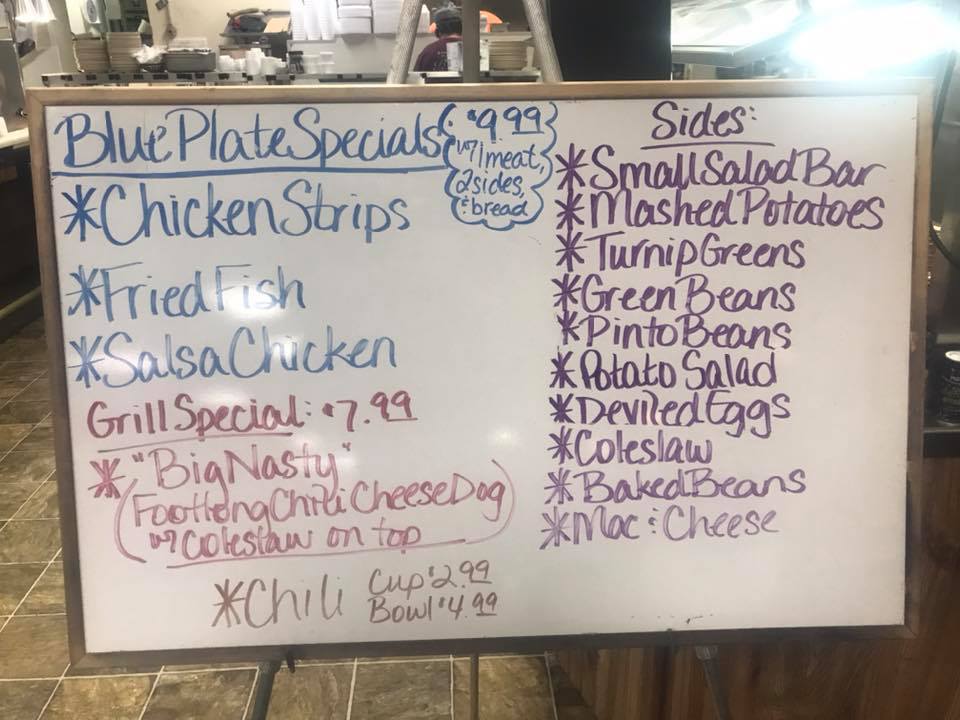 Blue Plate Specials
$9.99
w/ 1 meat,
2 sides,
& bread
*Chicken Strips
*Fried Fish
*Salsa Chicken
Grill Special: $7.99
* "Big Nasty"
(Footlong Chili Cheese Dog
w/ Coleslaw on top)
*Chili Cup $2.99
Bowl $4.99
Sides:
*Small Salad Bar
*Mashed Potatoes
*Turnip Greens
*Green Beans
*Pinto Beans
*Potato Salad
*Deviled Eggs
*Coleslaw
*Baked Beans
*Mac & Cheese